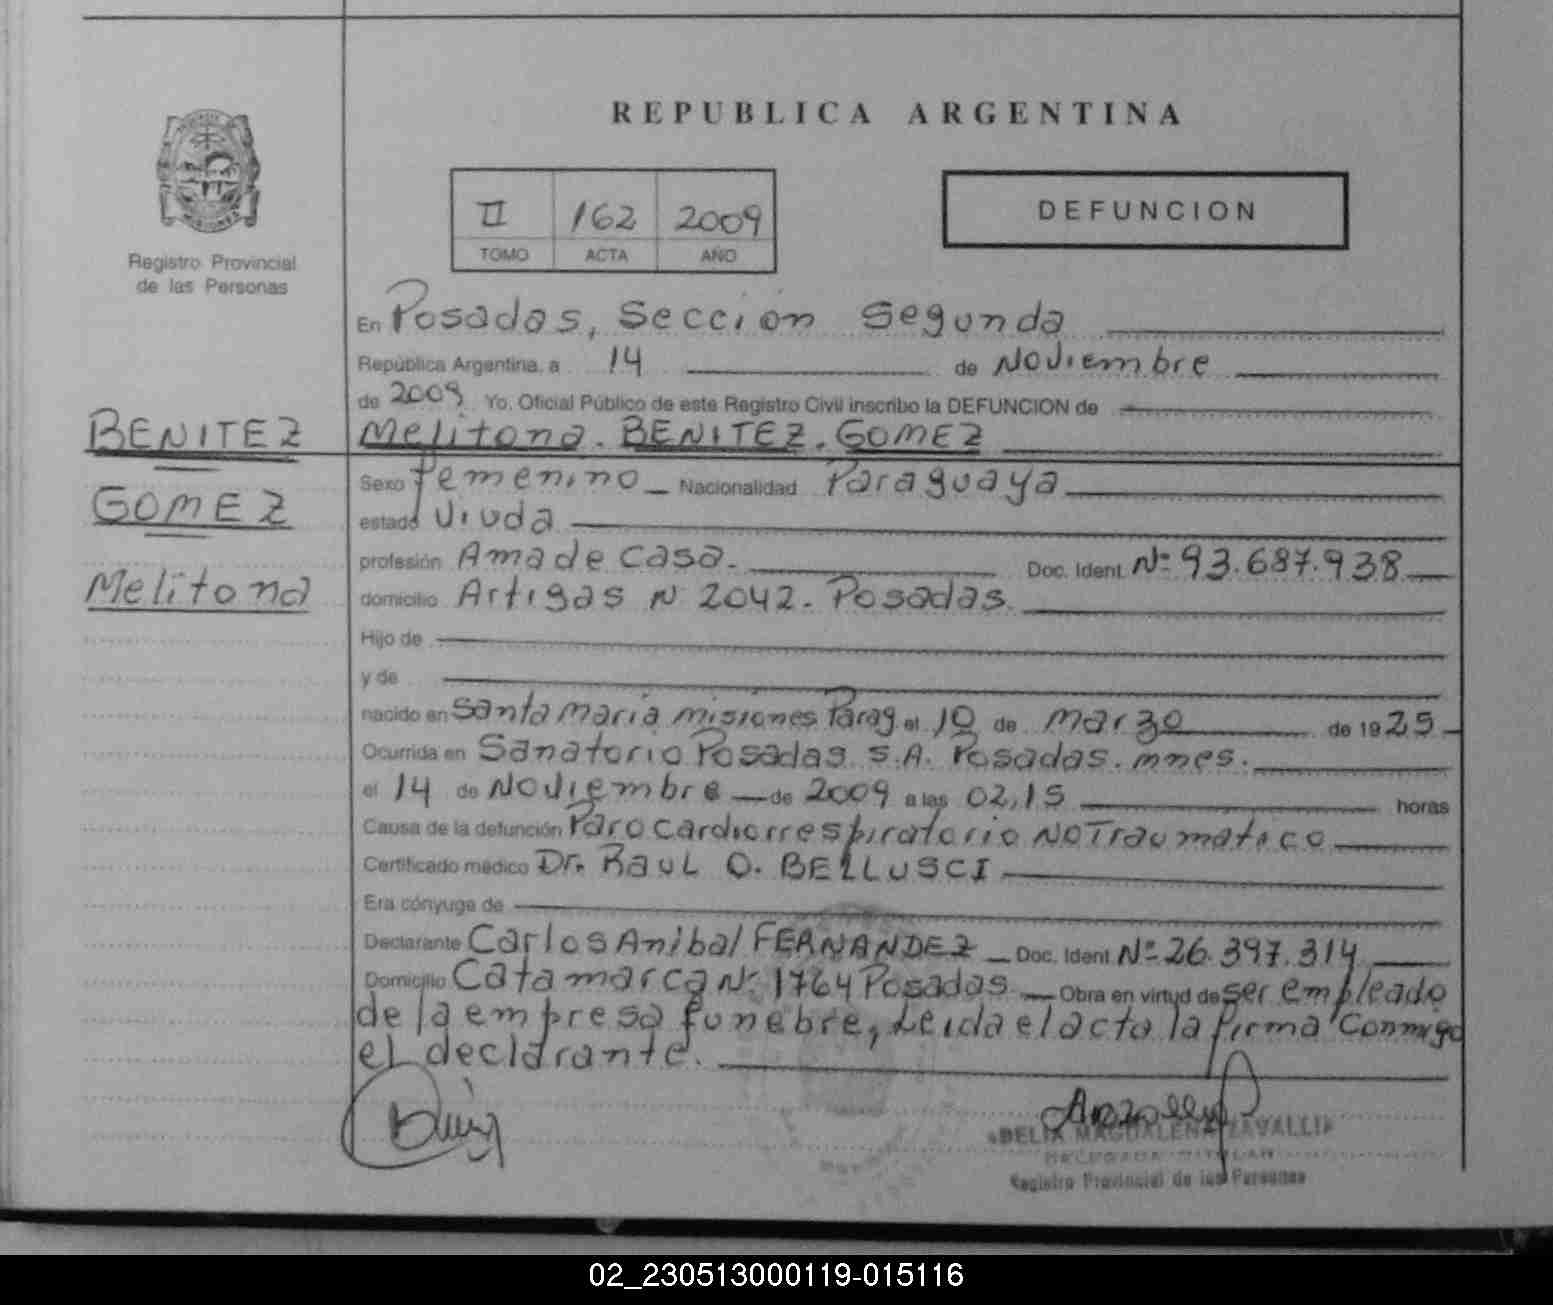 REPUBLICA ARGENTINA
II 162 2009
TOMO ACTA AÑO
DEFUNCION
Registro Provincial
de las Personas
En Posadas, Sección Segunda
República Argentina, a 14 de Noviembre
de 2009 Yo, Oficial Público de este Registro Civil inscribo la DEFUNCION de
BENITEZ
GOMEZ
Melitona
Melitona. BENITEZ. GOMEZ
Sexo Femenino Nacionalidad Paraguaya
estado Viuda
profesión Ama de casa. Doc. Ident. Nº 93.687.938
domicilio Artigas N 2042. Posadas.
Hijo de
y de
nacido en Santa Maria Misiones Parag el 10 de Marzo de 1925
Ocurrida en Sanatorio Posadas S.A. Posadas. mnes.
el 14 de Noviembre de 2009 a las 02,15 horas
Causa de la defunción Paro cardiorrespiratorio NO Traumatico
Certificado médico Dr. RAUL O. BELLUSCI
Era cónyuge de
Declarante Carlos Anibal FERNANDEZ Doc. Ident. Nº 26.397.314
Domicilio Catamarca Nº 1764 Posadas Obra en virtud de ser empleado
de la empresa funebre, Leida el acta la firma conmigo
el declarante.
DELIA MAGDALENA
Registro Provincial de las Personas
02_230513000119-015116